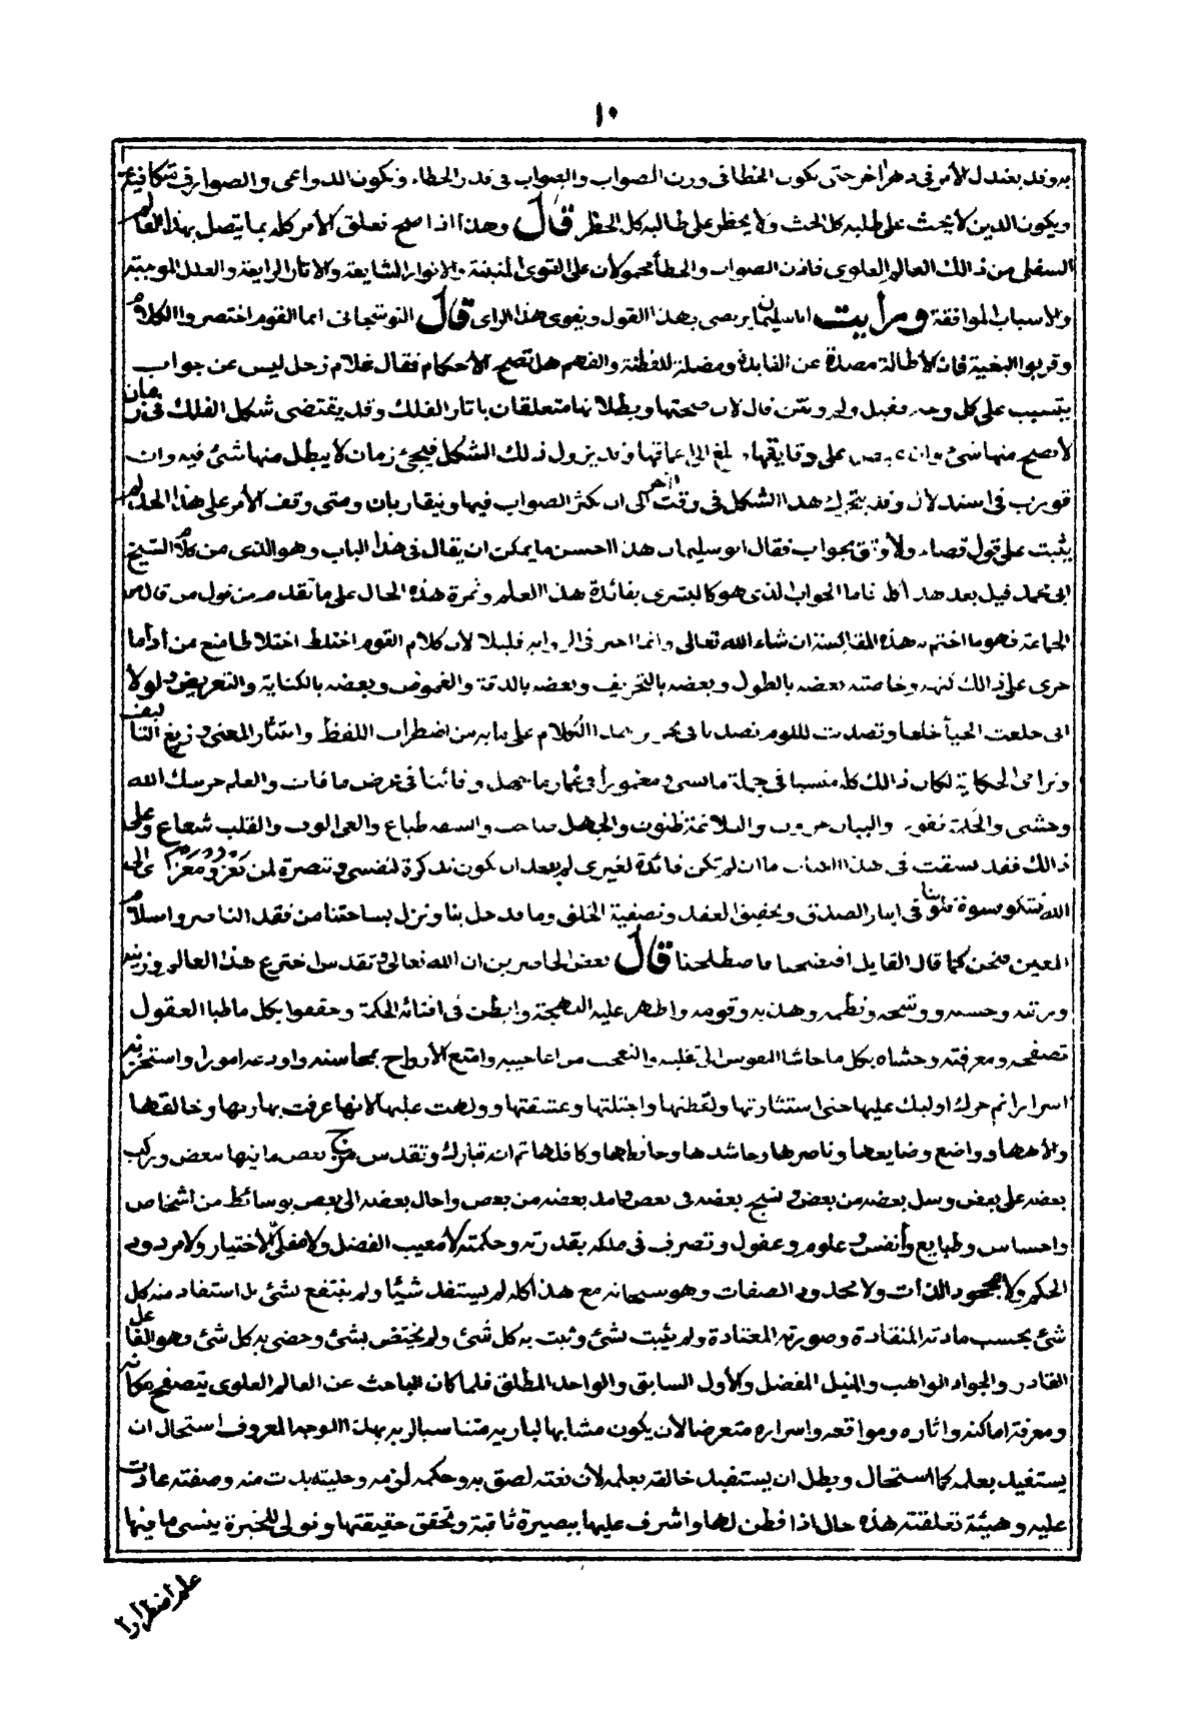 ١٠
به وقد يعتدل الأمر في دهر اخر حتى يكون الخطا في وزن الصواب والصواب في قدر الخطاء ويكون الدواعى والصوارف متكافية
ويكون الدين لا يحث على طلبه كل الحث ولا يحظر على طالبه كل الحظر قال وهذا اذا صح تعلق الامر كله بما يتصل بهذا العالم
السفلى من ذالك العالم العلوى فاذن الصواب والخطأ محمولان على القوى المنبثة والانوار الشايعة والاثار الرايعة والعلل الموجبة
والاسباب الموافقة ورأيت ابا سليمان يرضى بهذا القول ويقوى هذا الراى قال النوشجانى ايها القوم اختصروا الكلام
وقربوا البغية فان الاطالة مصدة عن الفايدة ومضلة للفطنة والفهم هل تصح الاحكام فقال غلام زحل ليس عن جواب
يتسبب على كل وجه فقيل وله ونتن قال لان صحتها وبطلانها متعلقان باثار الفلك وقد يقتضى شكل الفلك في زمان
لا يصح منها شئ وان غيص على دقايقها وبلغ الى اعماقها وقد يزول ذلك الشكل فيجئ زمان لا يبطل منها شئ فيه وان
قورب في استدلال وقد يتحرك هذا الشكل في وقت آخر الى ان يكثر الصواب فيها ويتقاربان ومتى وقف الأمر على هذا الحد لم
يثبت على قول قضاء ولا وثق بجواب فقال ابو سليمان هذا احسن ما يمكن ان يقال في هذا الباب وهو الذى من كلام الشيخ
ابى محمد قيل بعد هذا كله فاما الجواب الذى هو كالبشرى بفائدة هذا العلم وثمرة هذه الحال على ما تقدم من قول من قال من
الجماعة فهو ما اختم به هذه المقابسة ان شاء الله تعالى وانما اخر في الرواية قليلا لان كلام القوم اختلط اختلاطا منع من أداما
جرى على ذالك كنهه وخاصته بعضه بالطول وبعضه بالتحريف وبعضه بالدقة والغموض وبعضه بالكناية والتعريض ولولا
انى خلعت الحيأ خلعا وتصديت لللوم تصديا في تحرير هذا الكلام على ما به من اضطراب اللفظ وانتثار المعنى وزيغ التأليف
وترامى الحكاية لكان ذالك كله منسيا في جملة ما نسى ومغمورا في غمار ما جهل وفائتا في عرض ما فات والعلم حرسك الله
وحشى والخلة نفور والبيان حرون والبلاغة ظنون والجهل صاحب والسفه طباع والعى الوف والقلب شعاع وعلى
ذالك فقد سقت في هذا الكتاب ما ان لم تكن فائدة لغيرى لم يبعد ان يكون تذكرة لنفسى وتبصرة لمن الى
الله نشكو قسوة قلوبنا في ايثار الصدق وتحقيق العقد وتصفية الخلق وما قد حل بنا ونزل بساحتنا من فقد الناصر واسلام
المعين فنحن كما قال القايل افتضحنا ما صطلحنا قال بعض الحاضرين ان الله تعالى وتقدس اخترع هذا العالم وزينه
ورتبه وحسنه ووشحه ونظمه وهذبه وقومه واظهر عليه البهجة وابطن في اثنائه الحكمة وحققوا بكل ما طبا العقول
تصفحه ومعرفته وحشاه بكل ما حاشا النفوس الى تقليبه والتعجب من اعاجيبه وامتع الأرواح بمحاسنه واودعه امورا واستخزنه
اسرارا ثم حرك اولبك عليها حتى استثارتها ولقطتها واجتلتها وعشقتها وولهت عليها لانها عرفت بها ربها وخالقها
والاهها وواضع وضايعها وناصرها وحاشدها وحافظها وكافلها ثم انه تبارك وتقدس مزج بعض ما فيها ببعض وركب
بعضه على بعض وسل بعضه من بعض ونسج بعضه في بعض وامد بعضه من بعض واحال بعضه الى بعض بوسائط من اشخاص
واحساس وطبايع وأنفس وعلوم وعقول وتصرف في ملكه بقدرته وحكمته لا معيب الفضل ولا مقلى الاختيار ولا مردود
الحكم ولا مجحود الذات ولا محدود الصفات وهو سبحانه مع هذا كله لم يستفد شيئا ولم ينتفع بشئ بل استفاد منه كل
شئ بحسب مادته المنقادة وصورته المعتادة ولم يثبت بشئ وثبت به كل شئ ولم يختص بشئ وحضى به كل شئ وهو الفاعل
القادر والجواد الواهب والمنيل المفضل والأول السابق والواحد المطلق فلما كان الباحث عن العالم العلوى يتصفح مكانه
ومعرفة اماكنه واثاره ومواقعه واسراره متعرضا لان يكون مشابها لباريه متناسبا لربه بهذا الوجه المعروف استحال ان
يستفيد بعلمه كما استحال وبطل ان يستفيد خالقه بعلمه لان نعته لصق به وحكمه لزمه وحليته بدت منه وصفته عادت
عليه وهيئة تعلقته هذه حال اذا فطن لها واشرف عليها ببصيرة ثاقبة وتحقق حقيقتها وتولى للخبرة ينسى ما فيها
علم اضطرارا